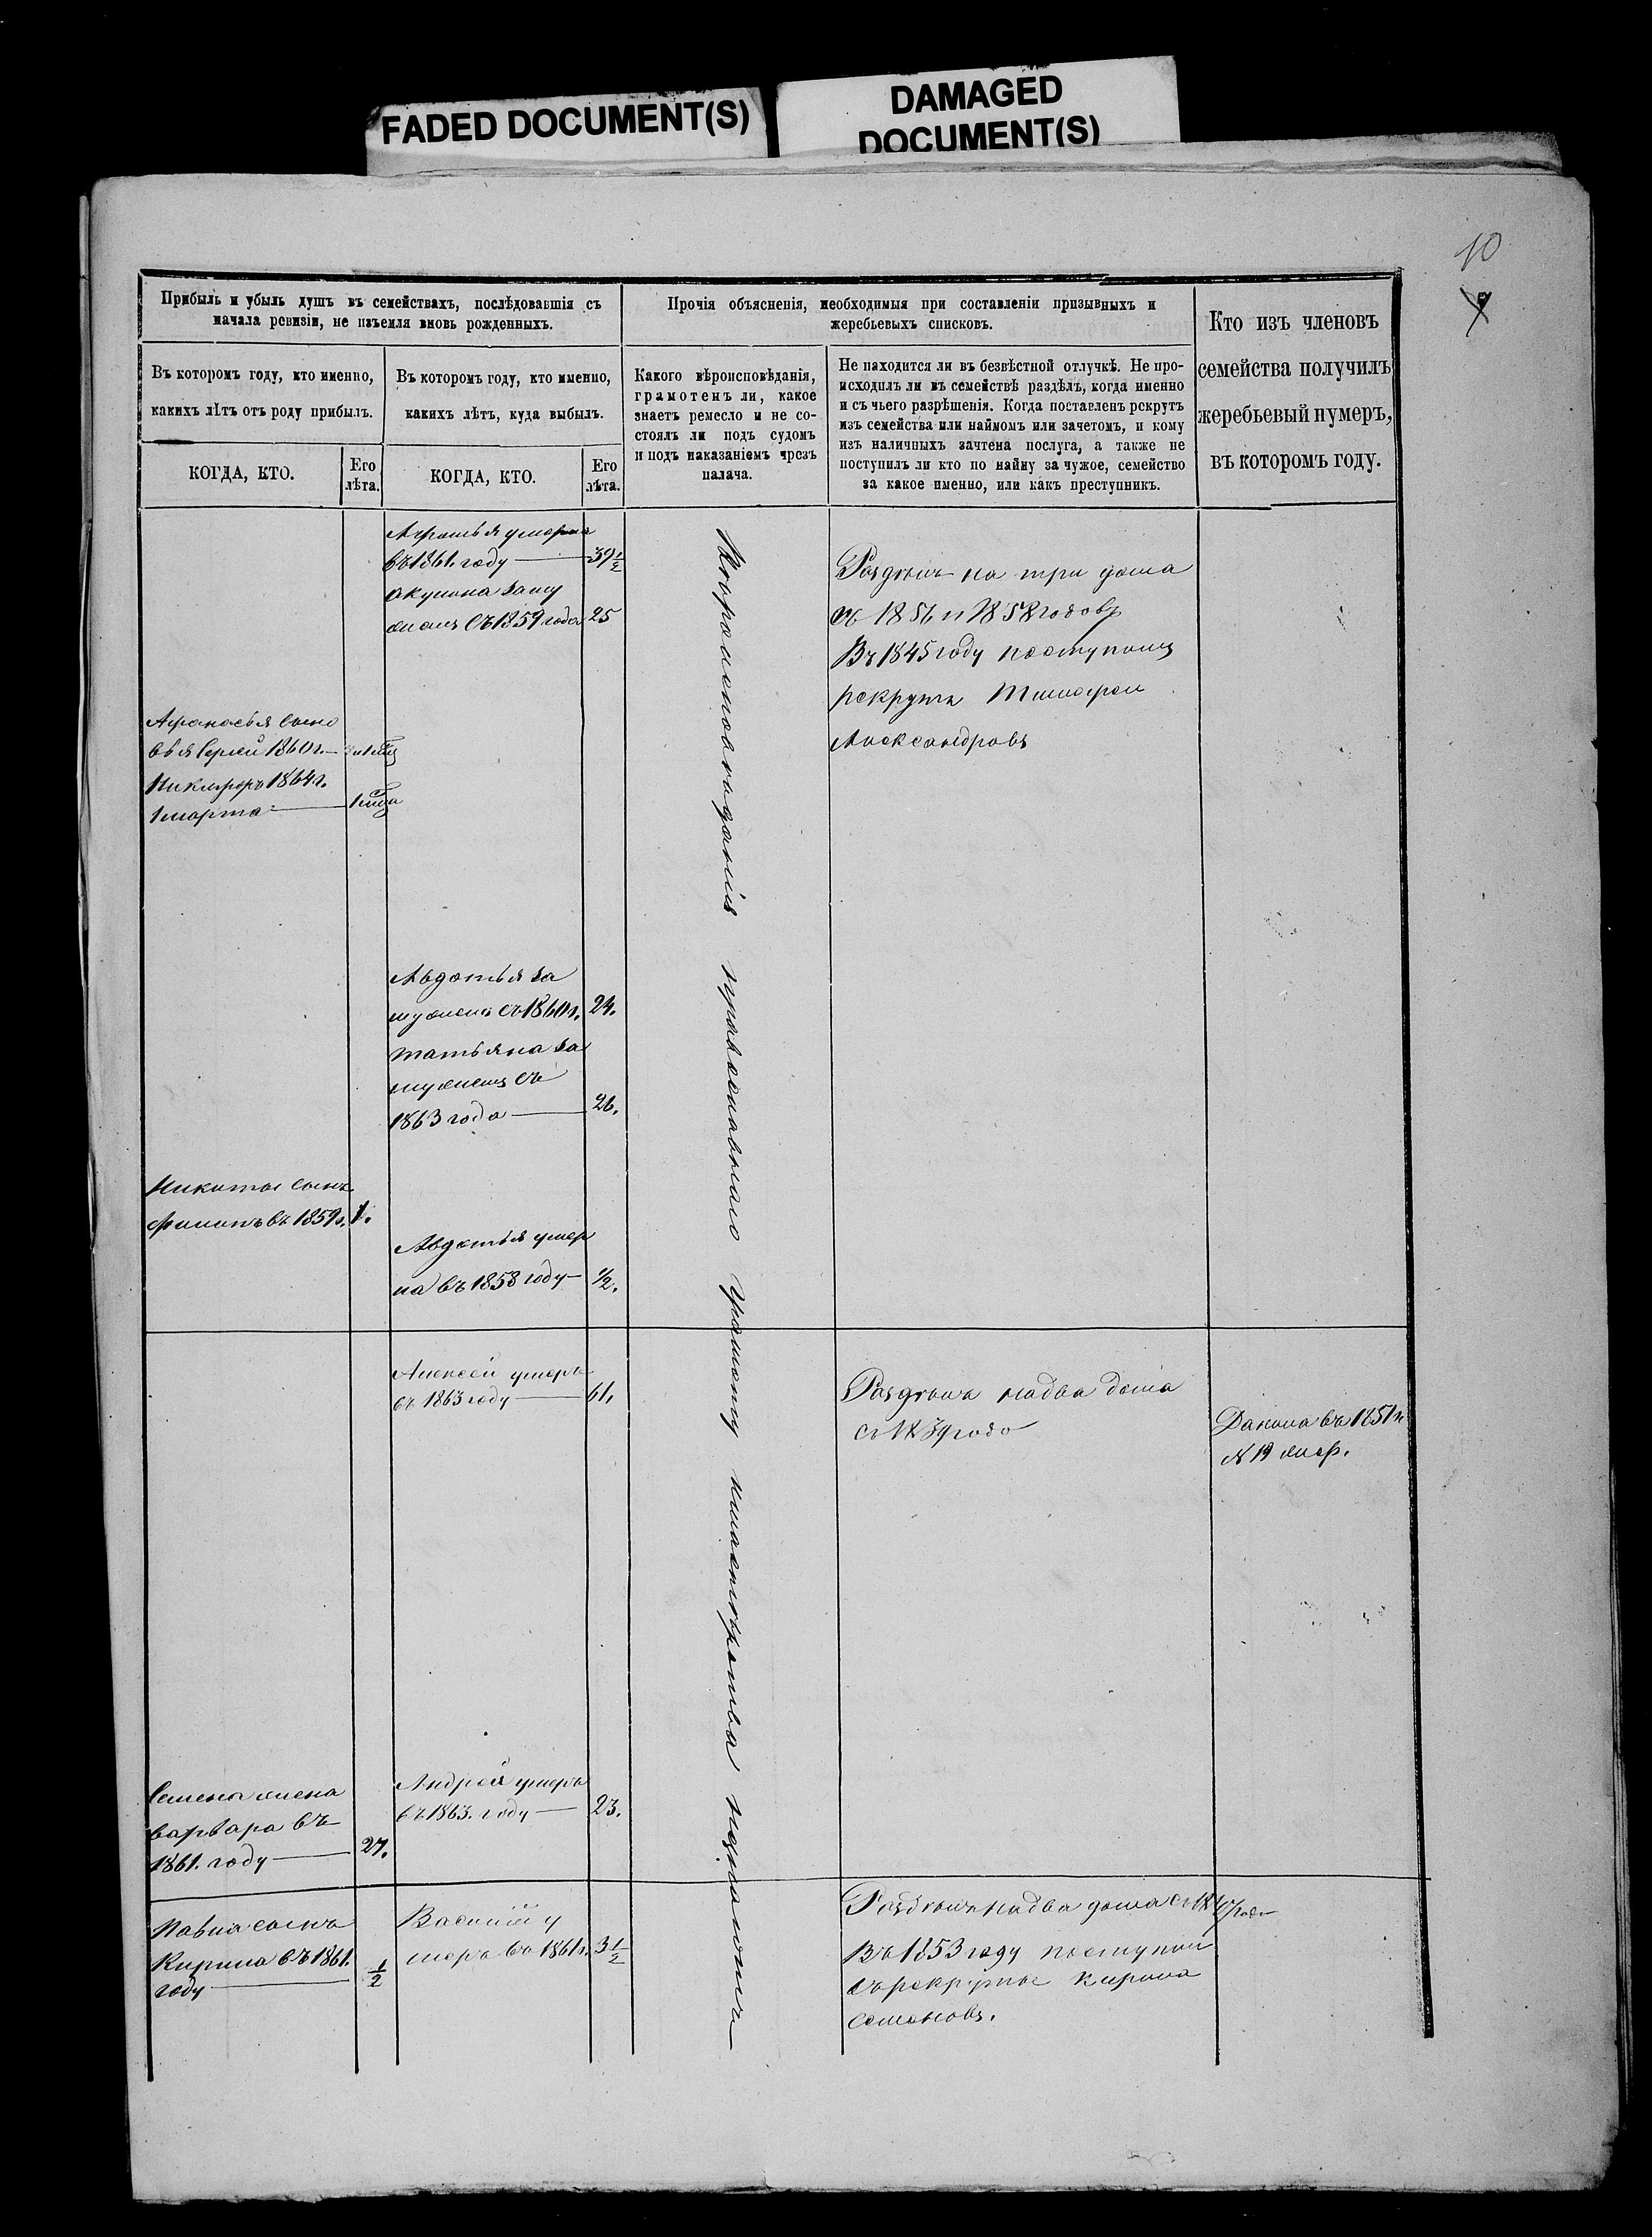 FADED DOCUMENT(S)
DAMAGED
DOCUMENT(S)
10
Прибыль и убыль душъ въ семействахъ, послѣдовавшія съ
начала ревизіи, не изъемля вновь рожденныхъ.
Прочія объясненія, необходимыя при составленіи призывныхъ и
жеребьевыхъ списковъ.
Кто изъ членовъ
семейства получилъ
жеребьевый нумеръ,
въ которомъ году.
Въ которомъ году, кто именно,
какихъ лѣтъ отъ роду прибылъ.
Въ которомъ году, кто именно,
какихъ лѣтъ, куда выбылъ.
Какого вѣроисповѣданія,
грамотенъ ли, какое
знаетъ ремесло и не со-
стоялъ ли подъ судомъ
и подъ наказаніемъ чрезъ
палача.
Не находится ли въ безвѣстной отлучкѣ. Не про-
исходилъ ли въ семействѣ раздѣлъ, когда именно
и съ чьего разрѣшенія. Когда поставленъ рекрутъ
изъ семейства или наймомъ или зачетомъ, и кому
изъ наличныхъ зачтена послуга, а также не
поступилъ ли кто по найму за чужое, семейство
за какое именно, или какъ преступникъ.
КОГДА, КТО.
Его
лѣта.
КОГДА, КТО.
Его
лѣта.
умерла
въ 1861. году 39 1/2
акулина заму
жемъ съ 1859 года 25
Афанасья сыно
вья Сергей 1860 г.
Никифоръ 1864 г.
1 марта
Авдотья за
мужемъ съ 1860 г. 24.
татьяна за
мужемъ съ
1863 года 26.
Никиты сынъ
Филипъ въ 1859 г. 1.
Авдотья умер
ла въ 1858 году 1/2.
Вероисповѣданія православнаго грамоту
Раздѣлъ на три дома
съ 1856 и 1858 годовъ
Въ 1845 году поступилъ
рекрутъ Тимофей
Александровъ
Алексей умеръ
въ 1863 году 61.
Раздѣлъ на два дома
съ 1839 года
Данила въ 1851 г.
№ 19 жер.
Семена жена
варвара въ
1861. году 27.
Андрей умеръ
въ 1863. году 23.
Павла сынъ
Кирила въ 1861.
году 1/2
Василий у
меръ въ 1861 г. 3 1/2
Раздѣлъ на два дома
Въ 1853 году поступил
въ рекруты Кирила
Семеновъ.